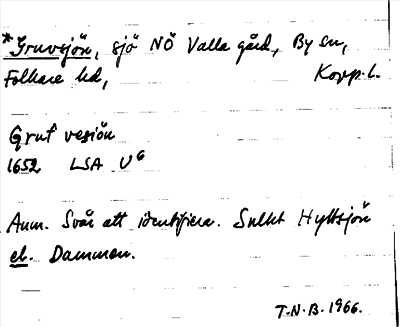 *Gruvsjön, sjö NÖ Valla gård, By sn,
Folkare hd, Kopp. l.
Gruf vesiön
1652 LSA U6
Anm. Svår att identifiera. Snarast Hyttsjön
el. Dammen.
T.N.B. 1966.